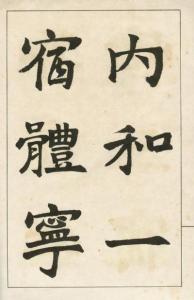 内和一
宿體寧